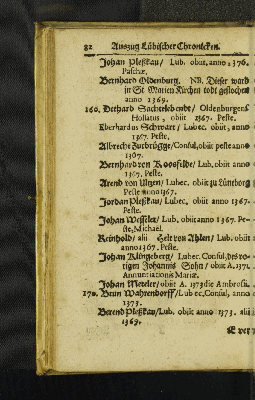 82 Auszug Lübischer Chronicken.
Johan Pleßkau/ Lub. obiit, anno 1376.
Paschæ.
Bernhard Oldenburg. NB. Dieser ward
in St Marien Kirchen todt gestochen
anno 1369.
160. Dethard Sachtelebendt/ Oldenburgens.
Holsatus, obiit 1367. Peste.
Eberhardus Schwart/ Lubec. obiit, anno
1367. Peste.
Albrecht Zurbrügge/ Consul, obiit peste anno
1367.
Bernhard von Koosfelde/ Lub, obiit anno
1367. Peste.
Arend von Ulzen/ Lubec. obiit zu Lüneborg
Peste anno 1367.
Jordan Pleßkau/ Lubec. obiit anno 1367.
Peste.
Johan Wesseler/ Lub. obiit anno 1367. Pe-
ste, Michael.
Reinhold/ alii Helt von Ahlen/ Lub, obiit
anno 1367. Peste.
Johan Klingeberg/ Lubec. Consul, des vo-
rigen Johannis Sohn/ obiit A. 1371.
Annunciationis Mariæ.
Johan Meteler/ obiit A. 1373 die Ambrosii.
170. Brun Wahrendorff/ Lubec, Consul, anno
1373.
Berend Pleßkau/ Lub. obiit anno 1373. alii
1369.